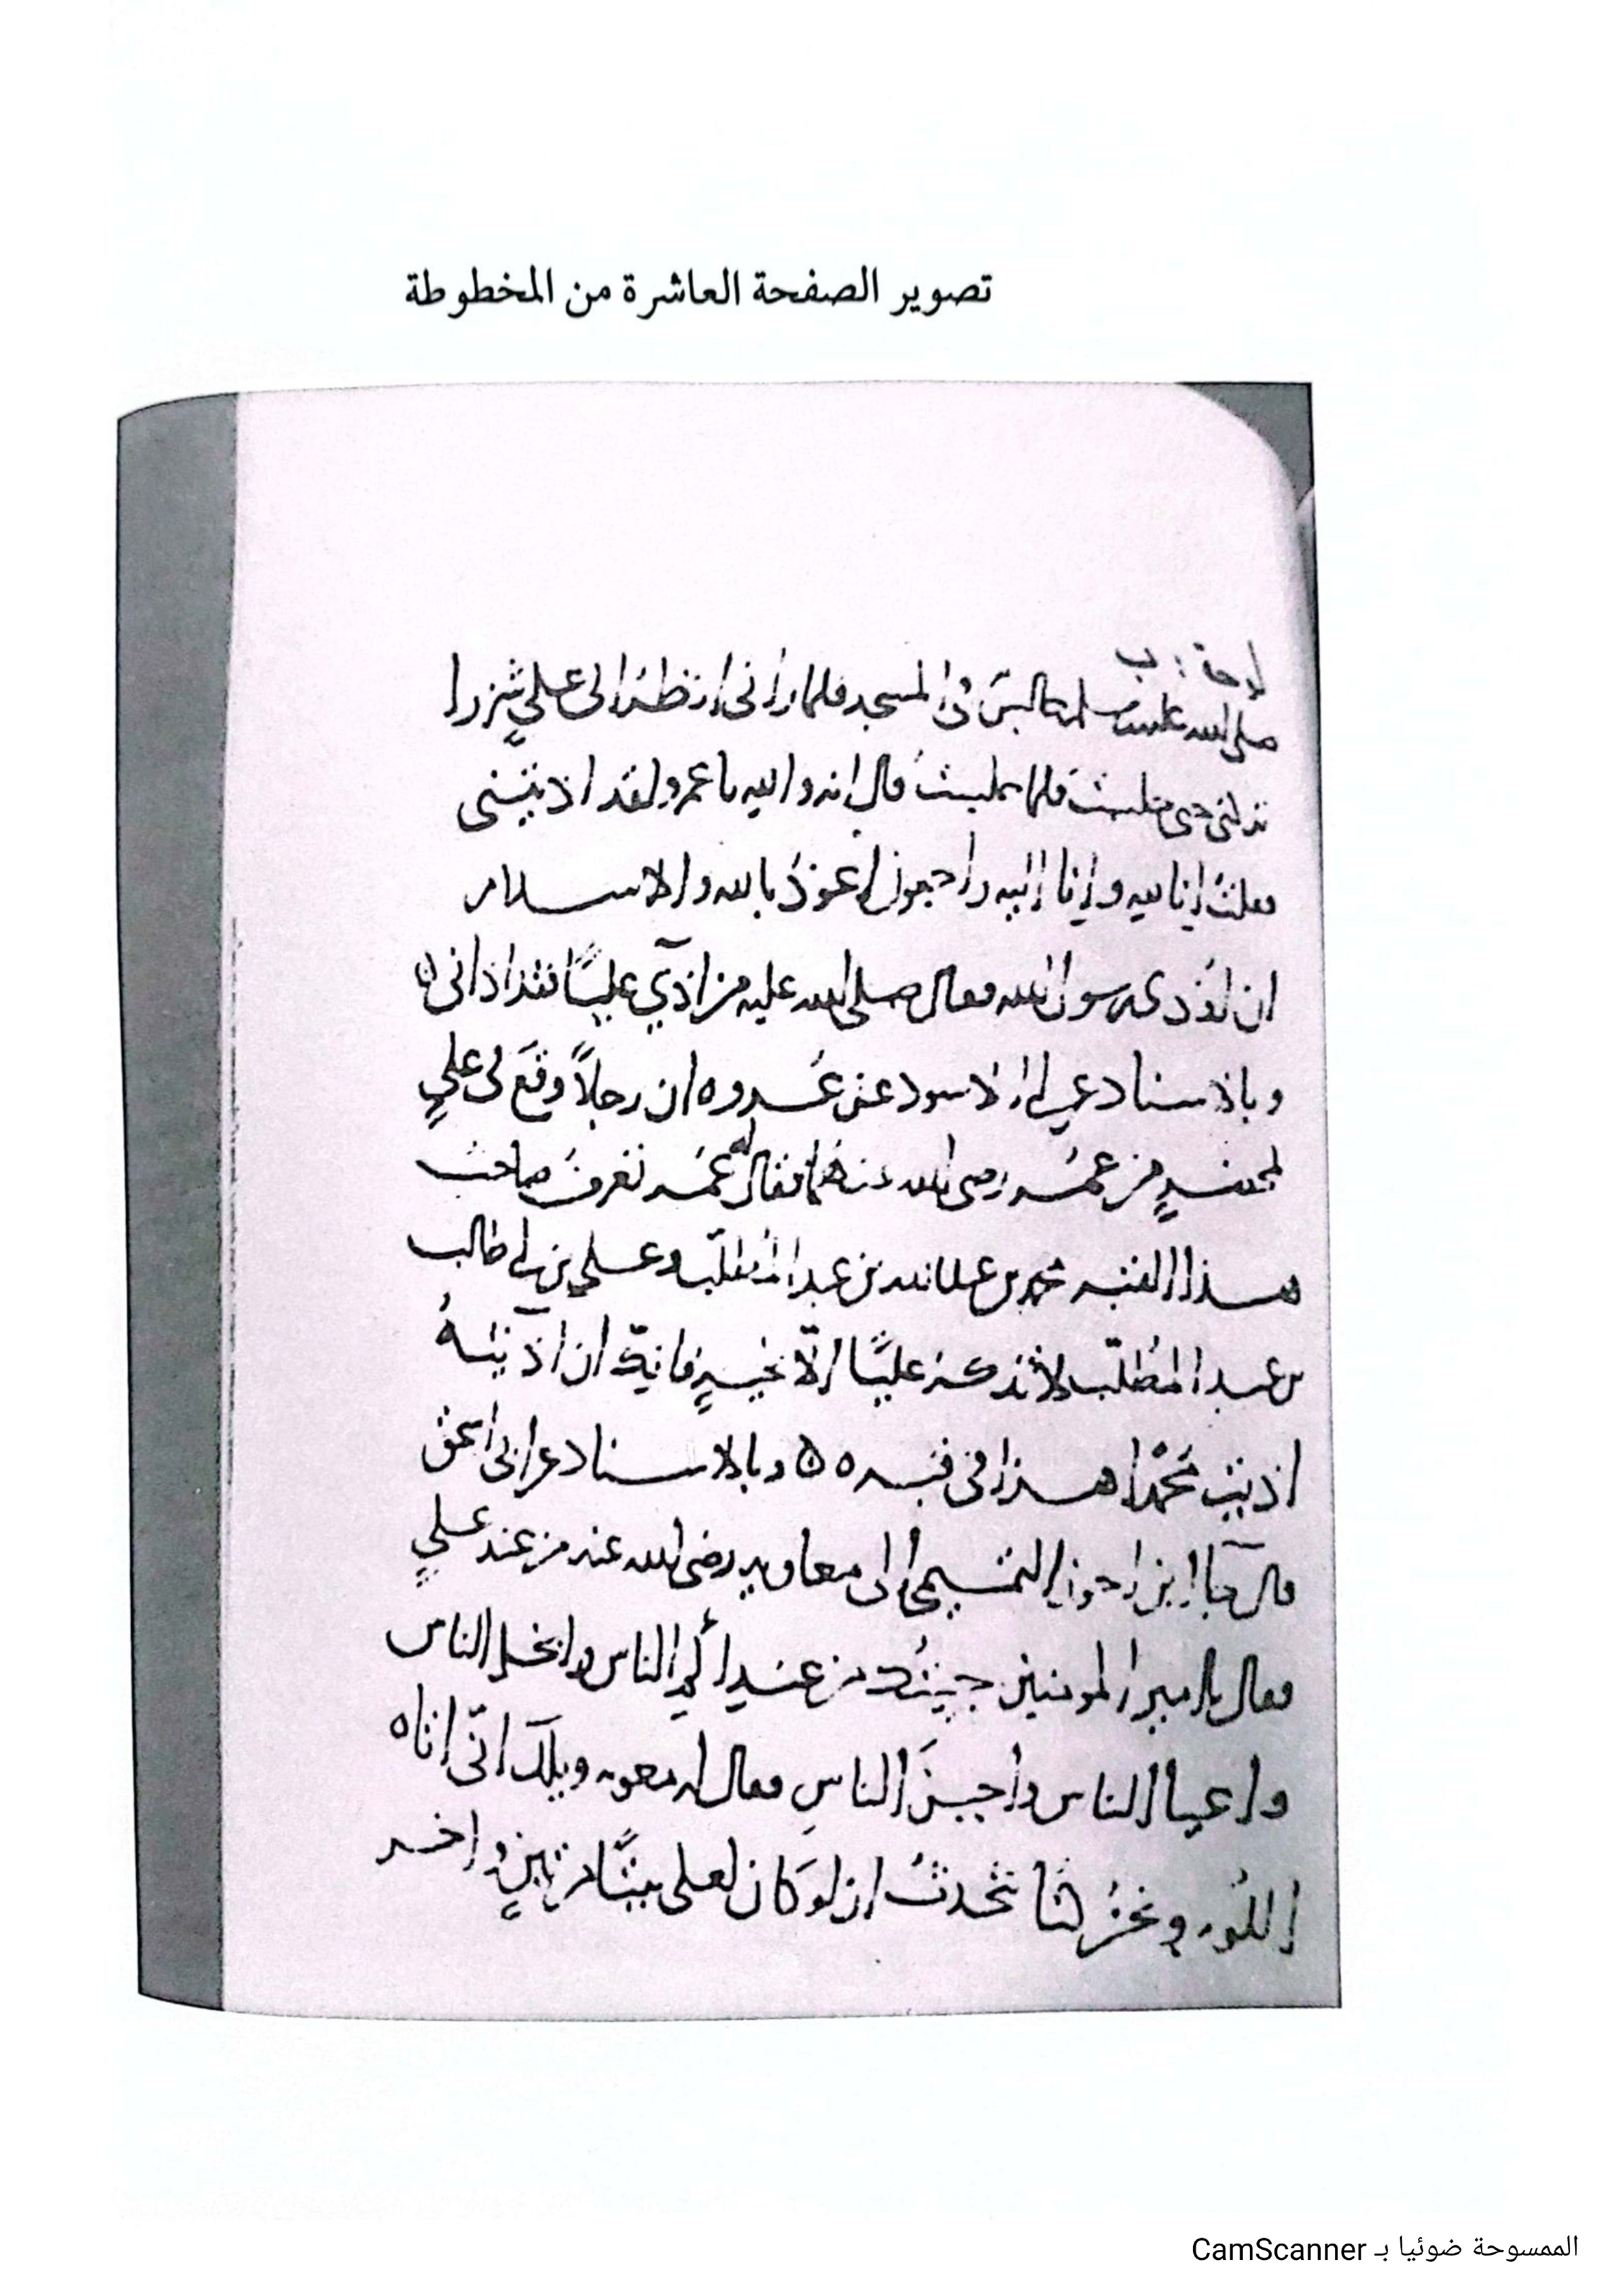 تصوير الصفحة العاشرة من المخطوطة
صلى الله عليه وسلم جالس في المسجد فلما راني انظر الى علي شزرا
حتى جلست فلما جلست قال انه والله يا عمرو لقد اذيتني
فقلت انا لله وانا اليه راجعون اعوذ بالله والاسلام
ان اوذي رسول الله فقال صلى الله عليه من اذى عليًا فقد اذاني
وبالاسناد عن ابي الاسود عن عروه ان رجلاً وقع في علي
بمحضرٍ من عمر رضي الله عنهما فقال له عمر تعرف صاحب
هذا القبر محمد بن عبد الله بن عبد المطلب وعلي بن ابي طالب
بن عبد المطلب لا تذكر عليًا الا بخيرٍ فانك ان اذيته
اذيت محمدا هذا في قبره ٥ وبالاسناد عن ابي اسحق
قال جا ابن احوز التميمي الى معاويه رضي الله عنه من عند علي
فقال يا امير المومنين جيتك من عند ألأم الناس وابخل الناس
واعيا الناس واجبن الناس فقال له معويه ويلك انى اتاه
اللوم ونحن كنا نتحدث ان لو كان لعلي بيتًا من تبنٍ واخر
الممسوحة ضوئيا بـ CamScanner